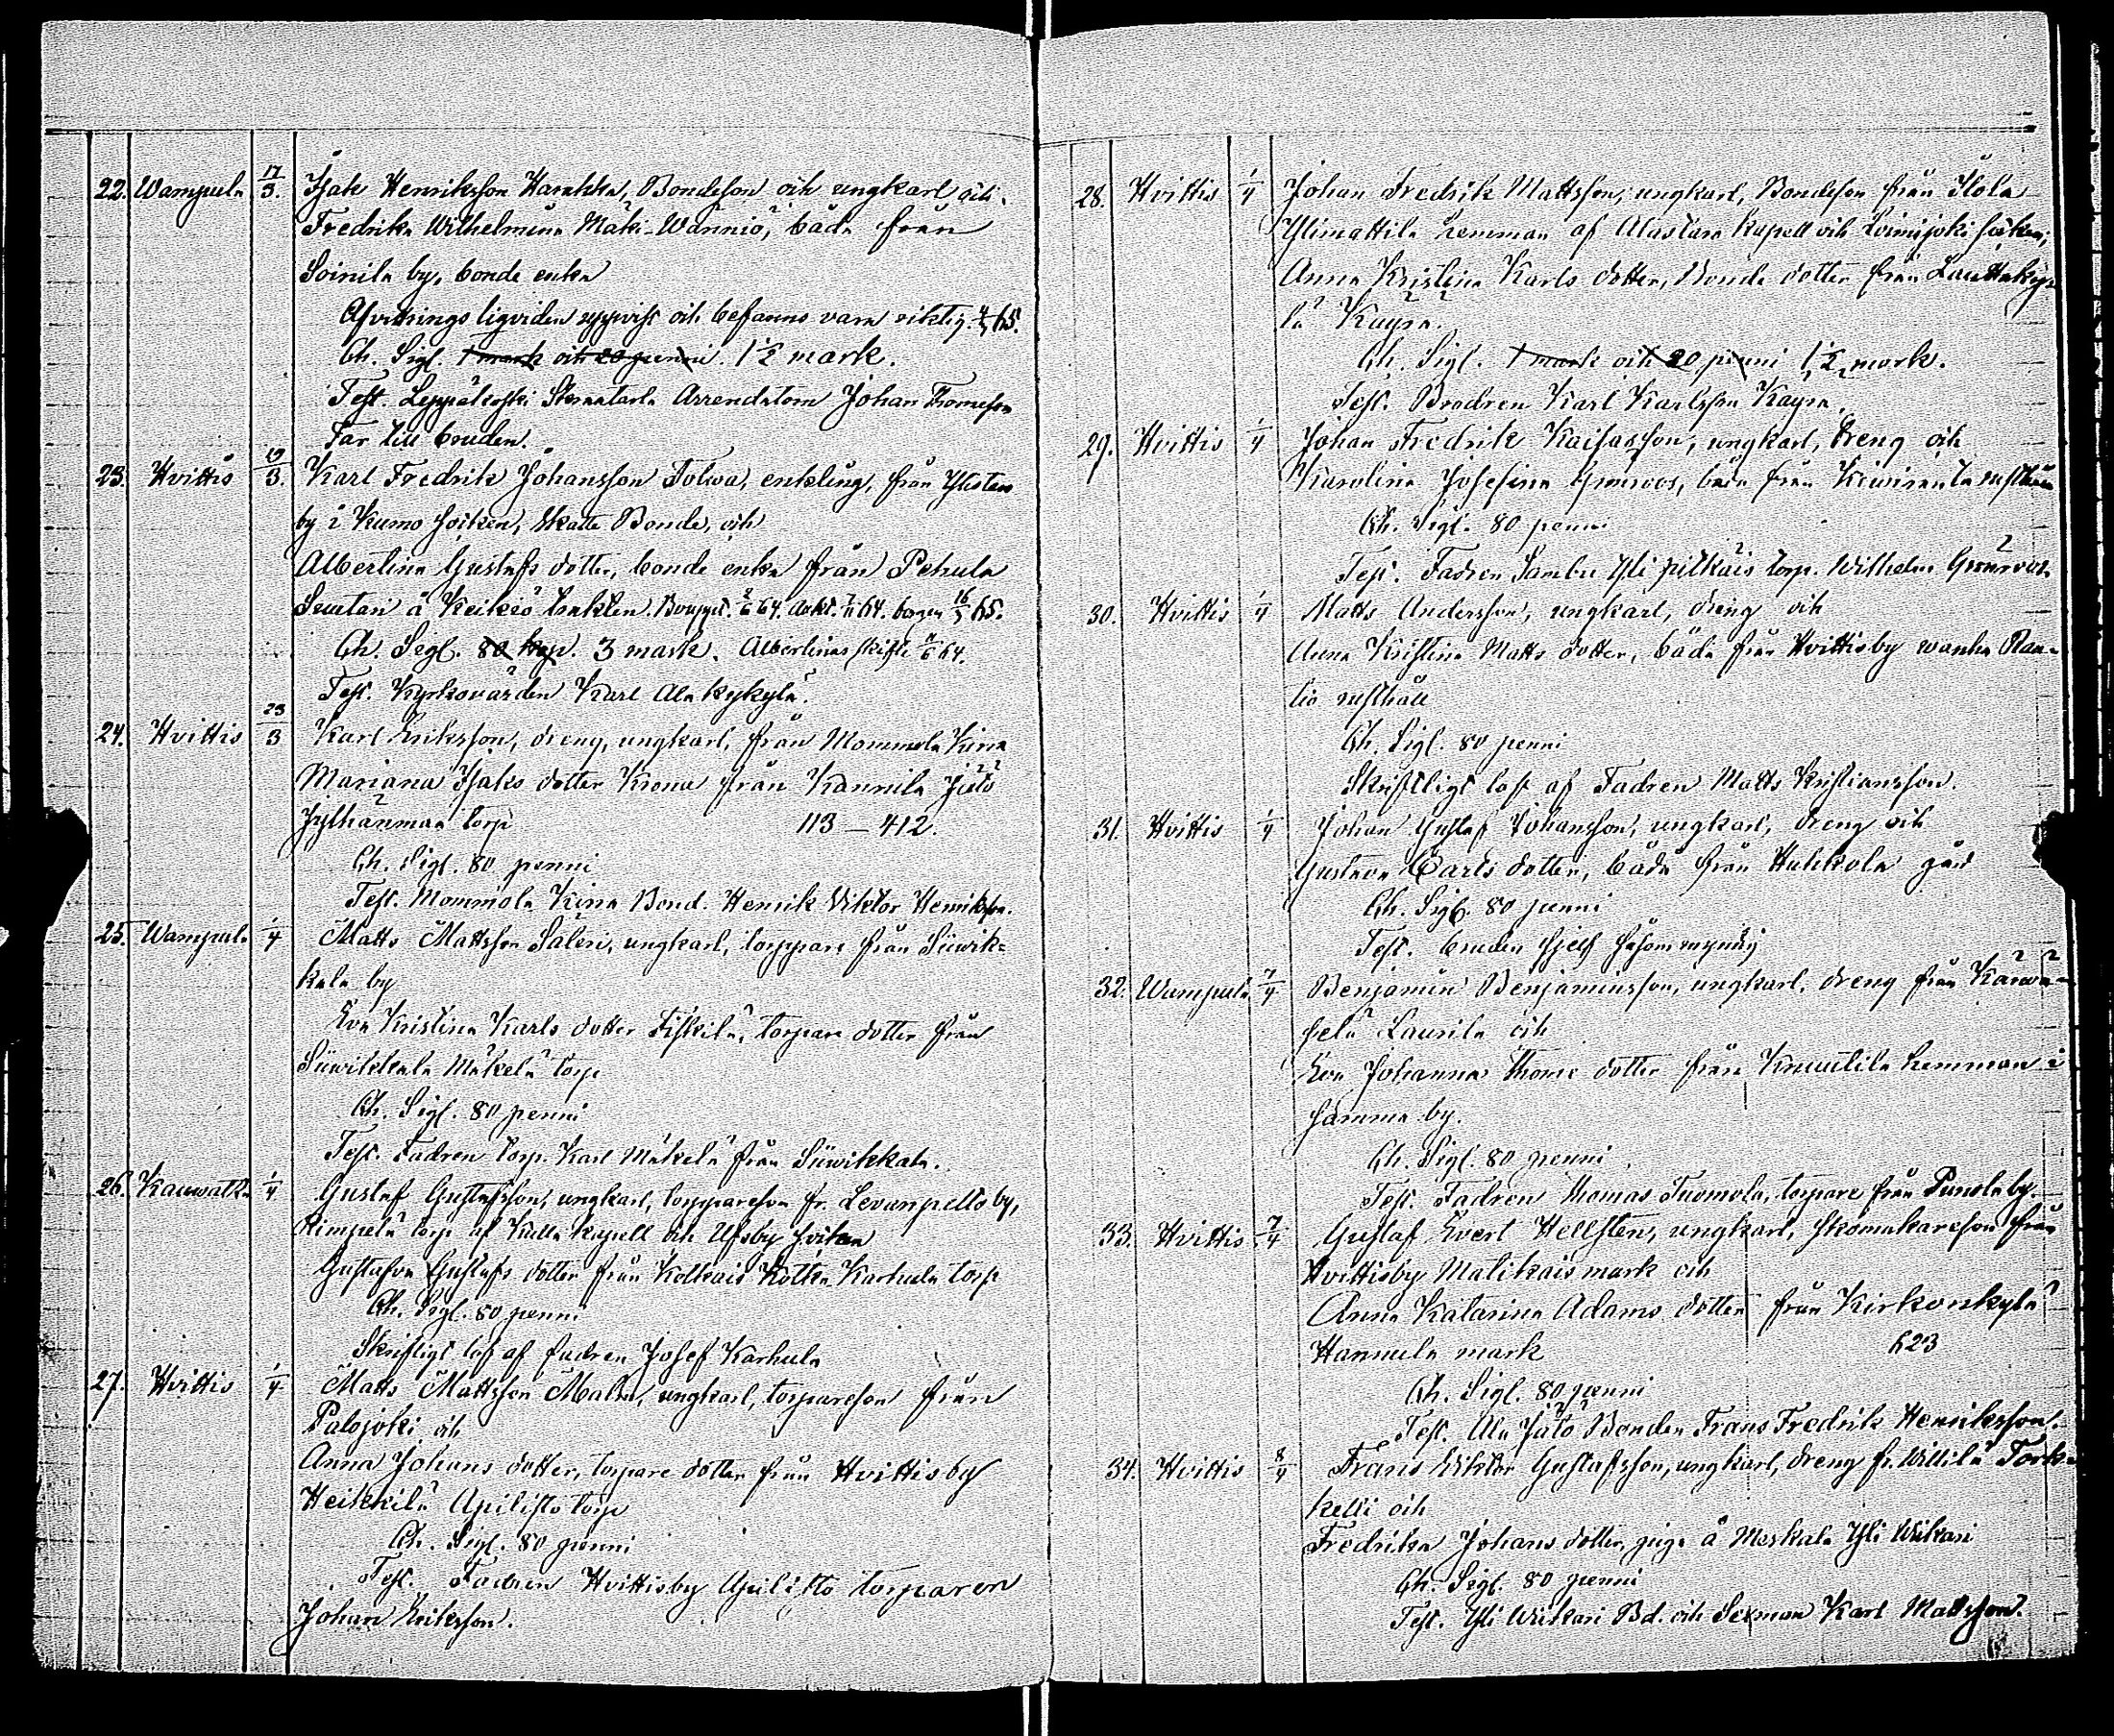 22. Wampula 17/3. Isak Henriksson Harakka, Bondeson och ungkarl, och
Fredrika Wilhelmina Mäki-Wänniö, båda från
Soinila by, bonde enka
Afvitrings liqviden uppvist och befanns vara riktig 65.
Ch. Sigl. 1 mark och 20 penni. 1 1/2 mark.
Test. Leppäkoski Arrendatorn Johan Thomesson
Far till bruden.
23. Hvittis 19/3. Karl Fredrik Johansson Tolwa, enkling, från Ylistaro
by i Kumo socken, Skatte Bonde, och
Albertina Gustafs dotter, bonde enka från Pehula
Suutari å Keikiö trakten. 64. 64. 65.
Ch. Sigl. 80 kop. 3 mark. Albertinas skifte 64.
Test. Kyrkovärden Karl Ala kykylä.
24. Hvittis 23/3 Karl Eriksson, dreng, ungkarl, från Mommola Kirra
Mariana Isaks dotter Krona från Kannila Jutö
Jylhänmaa torp 113 — 412.
Ch. Sigl. 80 penni
Test. Mommola Kirra Bond. Henrik Viktor Henriksson.
25. Wampula 1/4 Matts Mattsson Saleri, ungkarl, torppare från Siiwik-
kala by
Eva Kristina Karls dotter Fiskilä, torpare dotter från
Siiwikkala Mäkelä torp
Ch. Sigl. 80 penni
Test. Fadren torp. Karl Mäkelä från Siiwikkala.
26. Kauwatsa 1/4 Gustaf Gustafsson, ungkarl, torppareson fr. Levanpelto by,
Rimpelä torp af Kulla kapell och Ulfsby socken
Gustafva Gustafs dotter från Kolkais Kotka Karhula torp
Ch. Sigl. 80 penni
Skriftligt lof af fadren Josef Karhula
27. Hvittis 1/4 Matts Mattsson Malm, ungkarl, torpareson från
Palojoki och
Anna Johans dotter, torpare dotter från Hvittisby
Heikkilä Apilisto torp
Ch. Sigl. 80 penni
Test. Fadren Hvittisby Apilisto torparen
Johan Eriksson.
28. Hvittis 1/4 Johan Fredrik Mattsson, ungkarl, Bondeson från Ilola
Ylimattila hemman af Alastaro kapell och Loimijoki socken,
Anna Kristina Karls dotter, Bonde dotter från Lauttaky-
lä Käyrä.
Ch. Sigl. 1 mark och 20 penni 1 1/2 mark.
Test. Brodren Karl Karlsson Käyrä.
29. Hvittis 1/4 Johan Fredrik Kaisasson, ungkarl, dreng och
Karolina Josefina Grönroos, båda från rusthåll
Ch. Sigl. 80 penni
Test. Fadren Sambu Yli pitkäis torp. Wilhelm Grönroos.
30. Hvittis 1/4 Matts Andersson, ungkarl, dreng och
Anna Kristina Matts dotter, båda från Hvittisby wanha Rau-
tio rusthåll
Ch. Sigl. 80 penni
Skriftligt lof af Fadren Matts Kristiansson.
31. Hvittis 1/4 Johan Gustaf Johansson, ungkarl, dreng och
Gustava Carls dotter, båda från Huhkola gård
Ch. Sigl. 80 penni
Test. bruden sjelf såsom myndig
32. Wampula 7/4 Benjamin Benjaminsson, ungkarl, dreng från Kärwä-
selä Laurila och
Eva Johanna Thome dotter från Knuutila hemman i
samma by.
Ch. Sigl. 80 penni
Test. Fadren Thomas Tuomola, torpare från Punola by.
33. Hvittis 7/4 Gustaf Evert Hellsten, ungkarl, skomakareson från
Hvittisby Matikais mark och
Anna Katarina Adams dotter från Kirkonkylä
Hannula mark 623
Ch. Sigl. 80 penni
Test. Ala Jutö Bonden Frans Fredrik Henriksson.
34. Hvittis 8/4 Frans Wiktor Gustafsson, ungkarl, dreng fr. Willilä Tork-
kelli och
Fredrika Johans dotter, piga å Meskala Yli Wikari
Ch. Sigl. 80 penni
Test. Yli Wikari Bd. och Sexman Karl Mattsson.